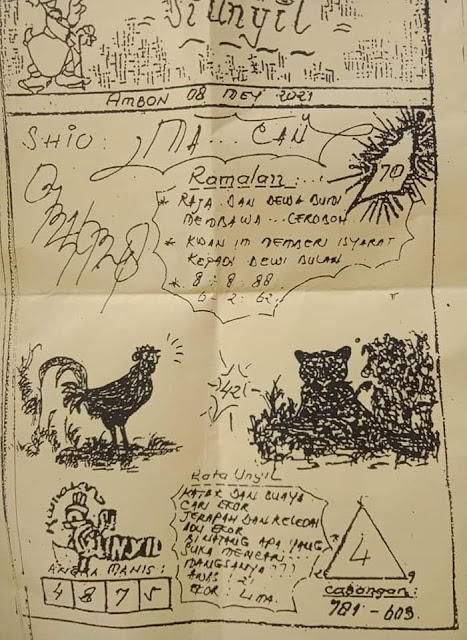 Si Unyil
AMBON 08 MEY 2021
SHIO : MA... CAN
Ramalan : ...
70
* RAJA DAN DEWA BUMI
MEMBAWA ... CEROBOH
* KWAN IM MEMBERI ISYARAT
KEPADA DEWI BULAN
* 8 : 8 : 88
6 : 2 : 62
42
Kata Unyil
KATAK DAN BUAYA
CARI EKOR
JERAPAH DAN KELEDAI
ADU EKOR
BINATANG APA YANG
SUKA MENCARI
MANGSANYA ???
AWAS : 21
EKOR : LIMA
UNYIL
ANGKA MANIS :
4 8 7 5
4
9
Cabangan :
781 - 603